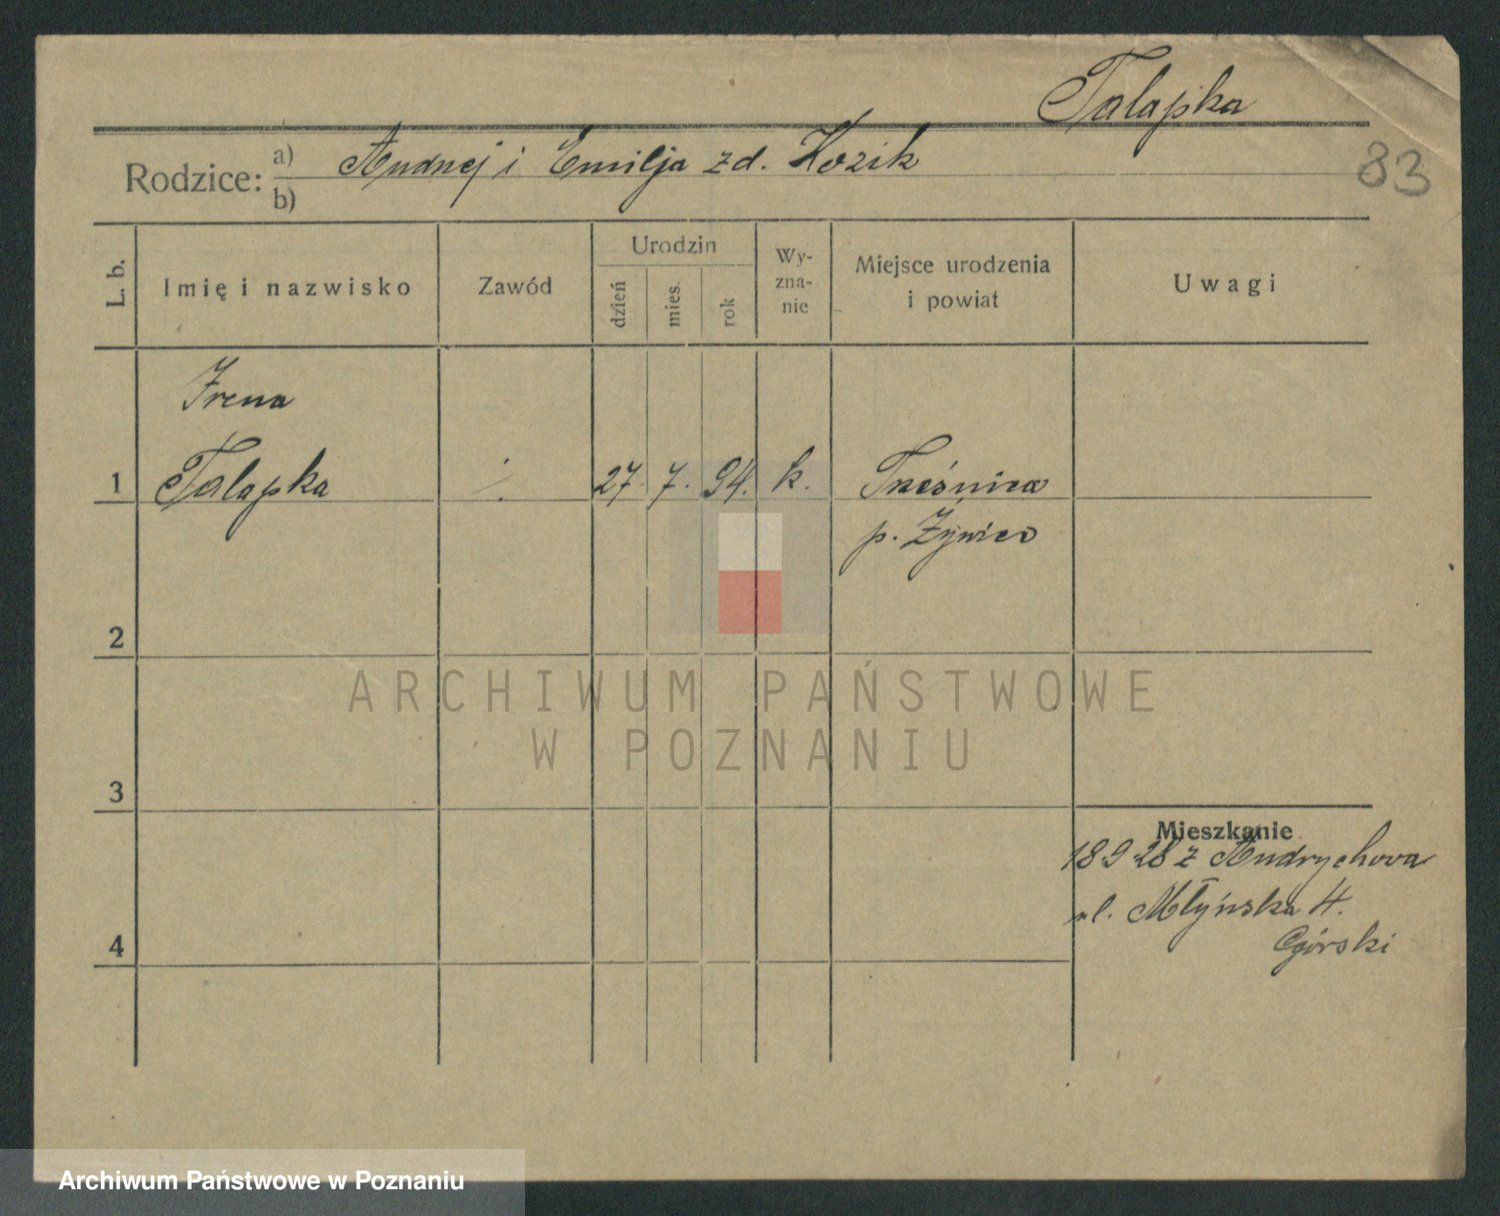 Talapka
83
Rodzice: a) Andrzej i Emilja zd. Kozik
b)
L. b.
Imię i nazwisko
Zawód
Urodzin
dzień
mies.
rok
Wy-
zna-
nie
Miejsce urodzenia
i powiat
Uwagi
Irena
1 Talapka 27. 7. 94. k. Treśnica
p. Żywiec
2
ARCHIWUM PAŃSTWOWE
W POZNANIU
3
Mieszkanie
18 9 28 z Andrychova
ul. Młyńska 4.
Górski
4
Archiwum Państwowe w Poznaniu